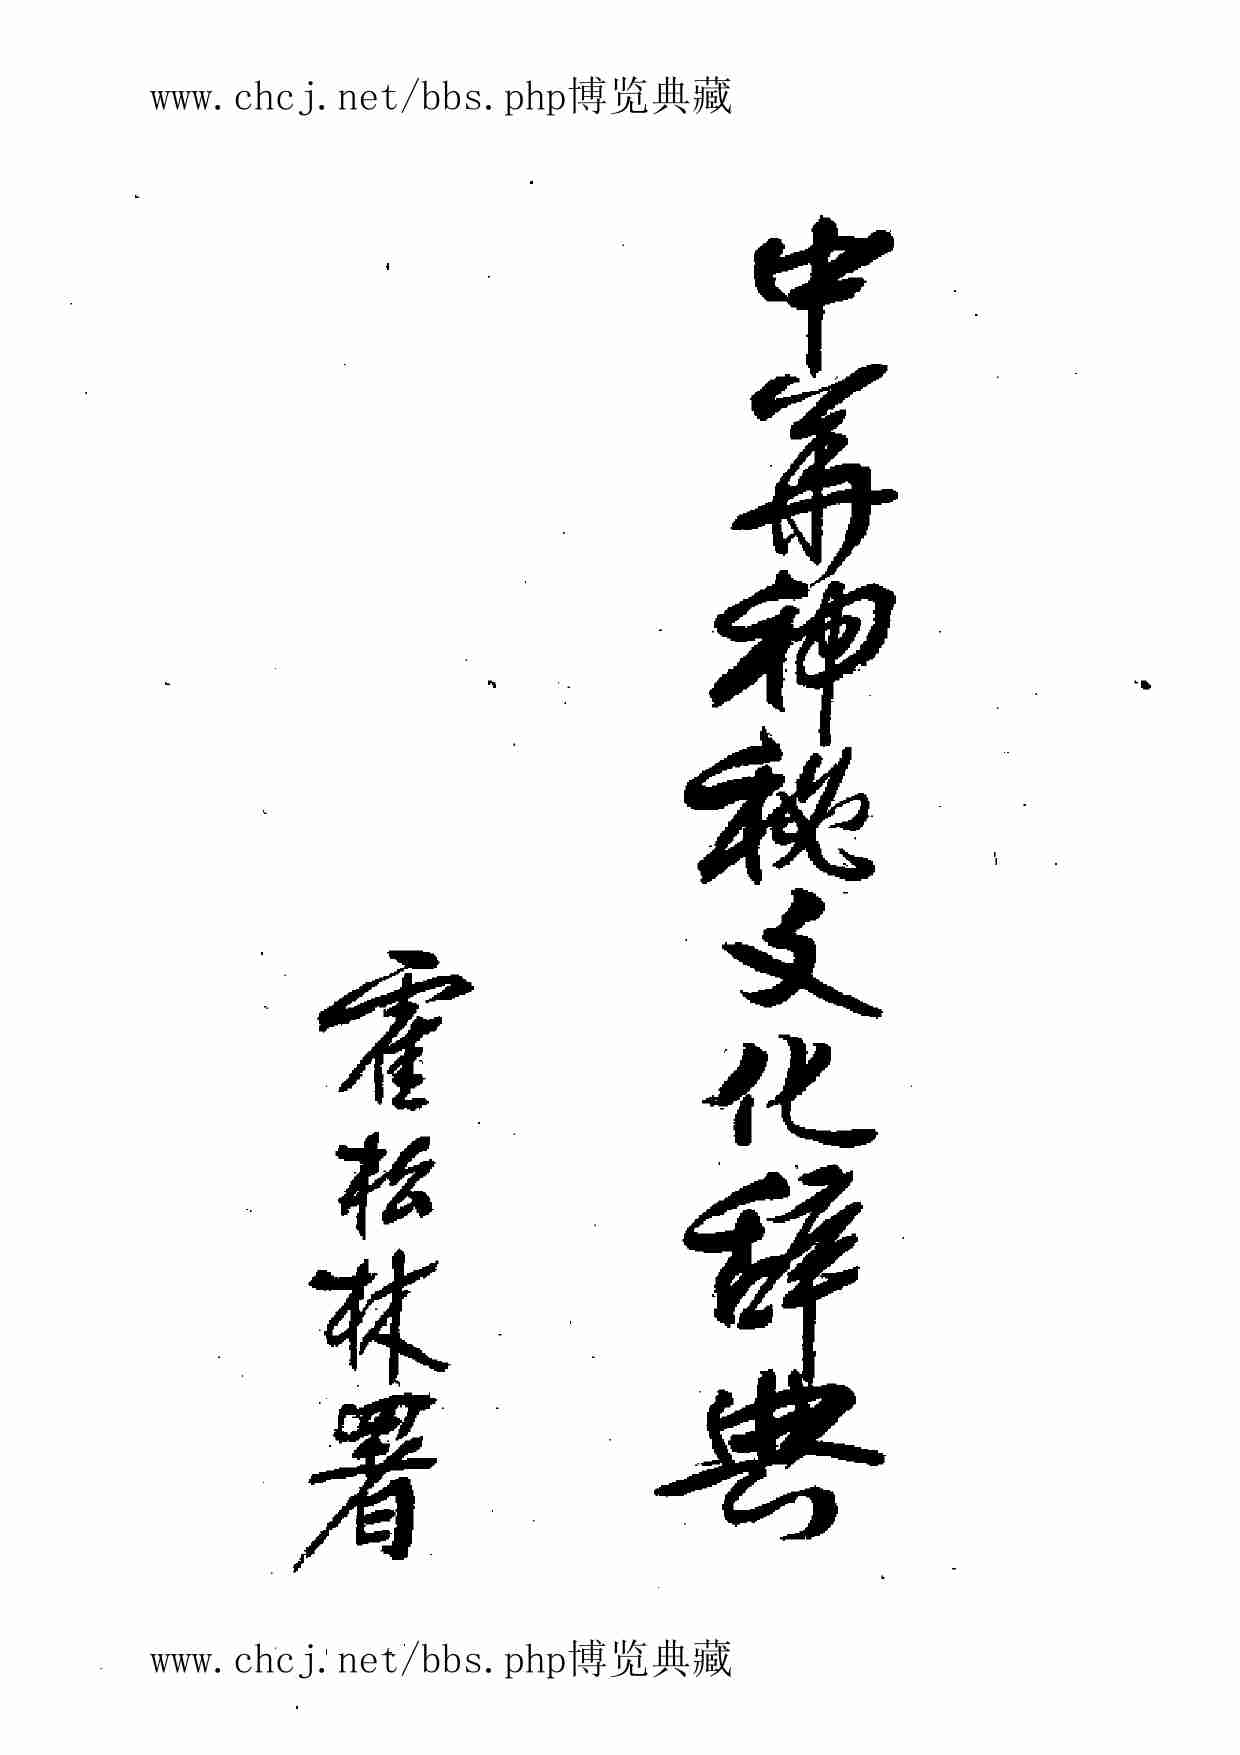 www.chcj.net/bbs.php博览典藏
中華神秘文化辞典
霍松林署
www.chcj.net/bbs.php博览典藏